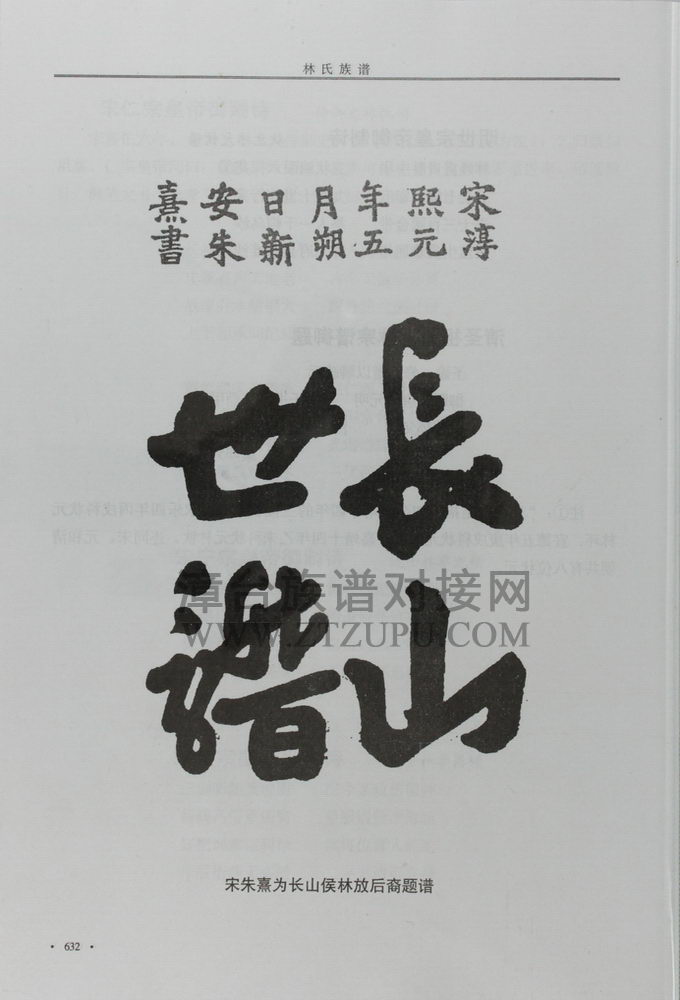 林氏族谱
宋淳
熙元
年五
月朔
日新
安朱
熹書
長山
世譜
漳台族谱对接网
WWW.ZTZUPU.COM
宋朱熹为长山侯林放后裔题谱
· 632 ·